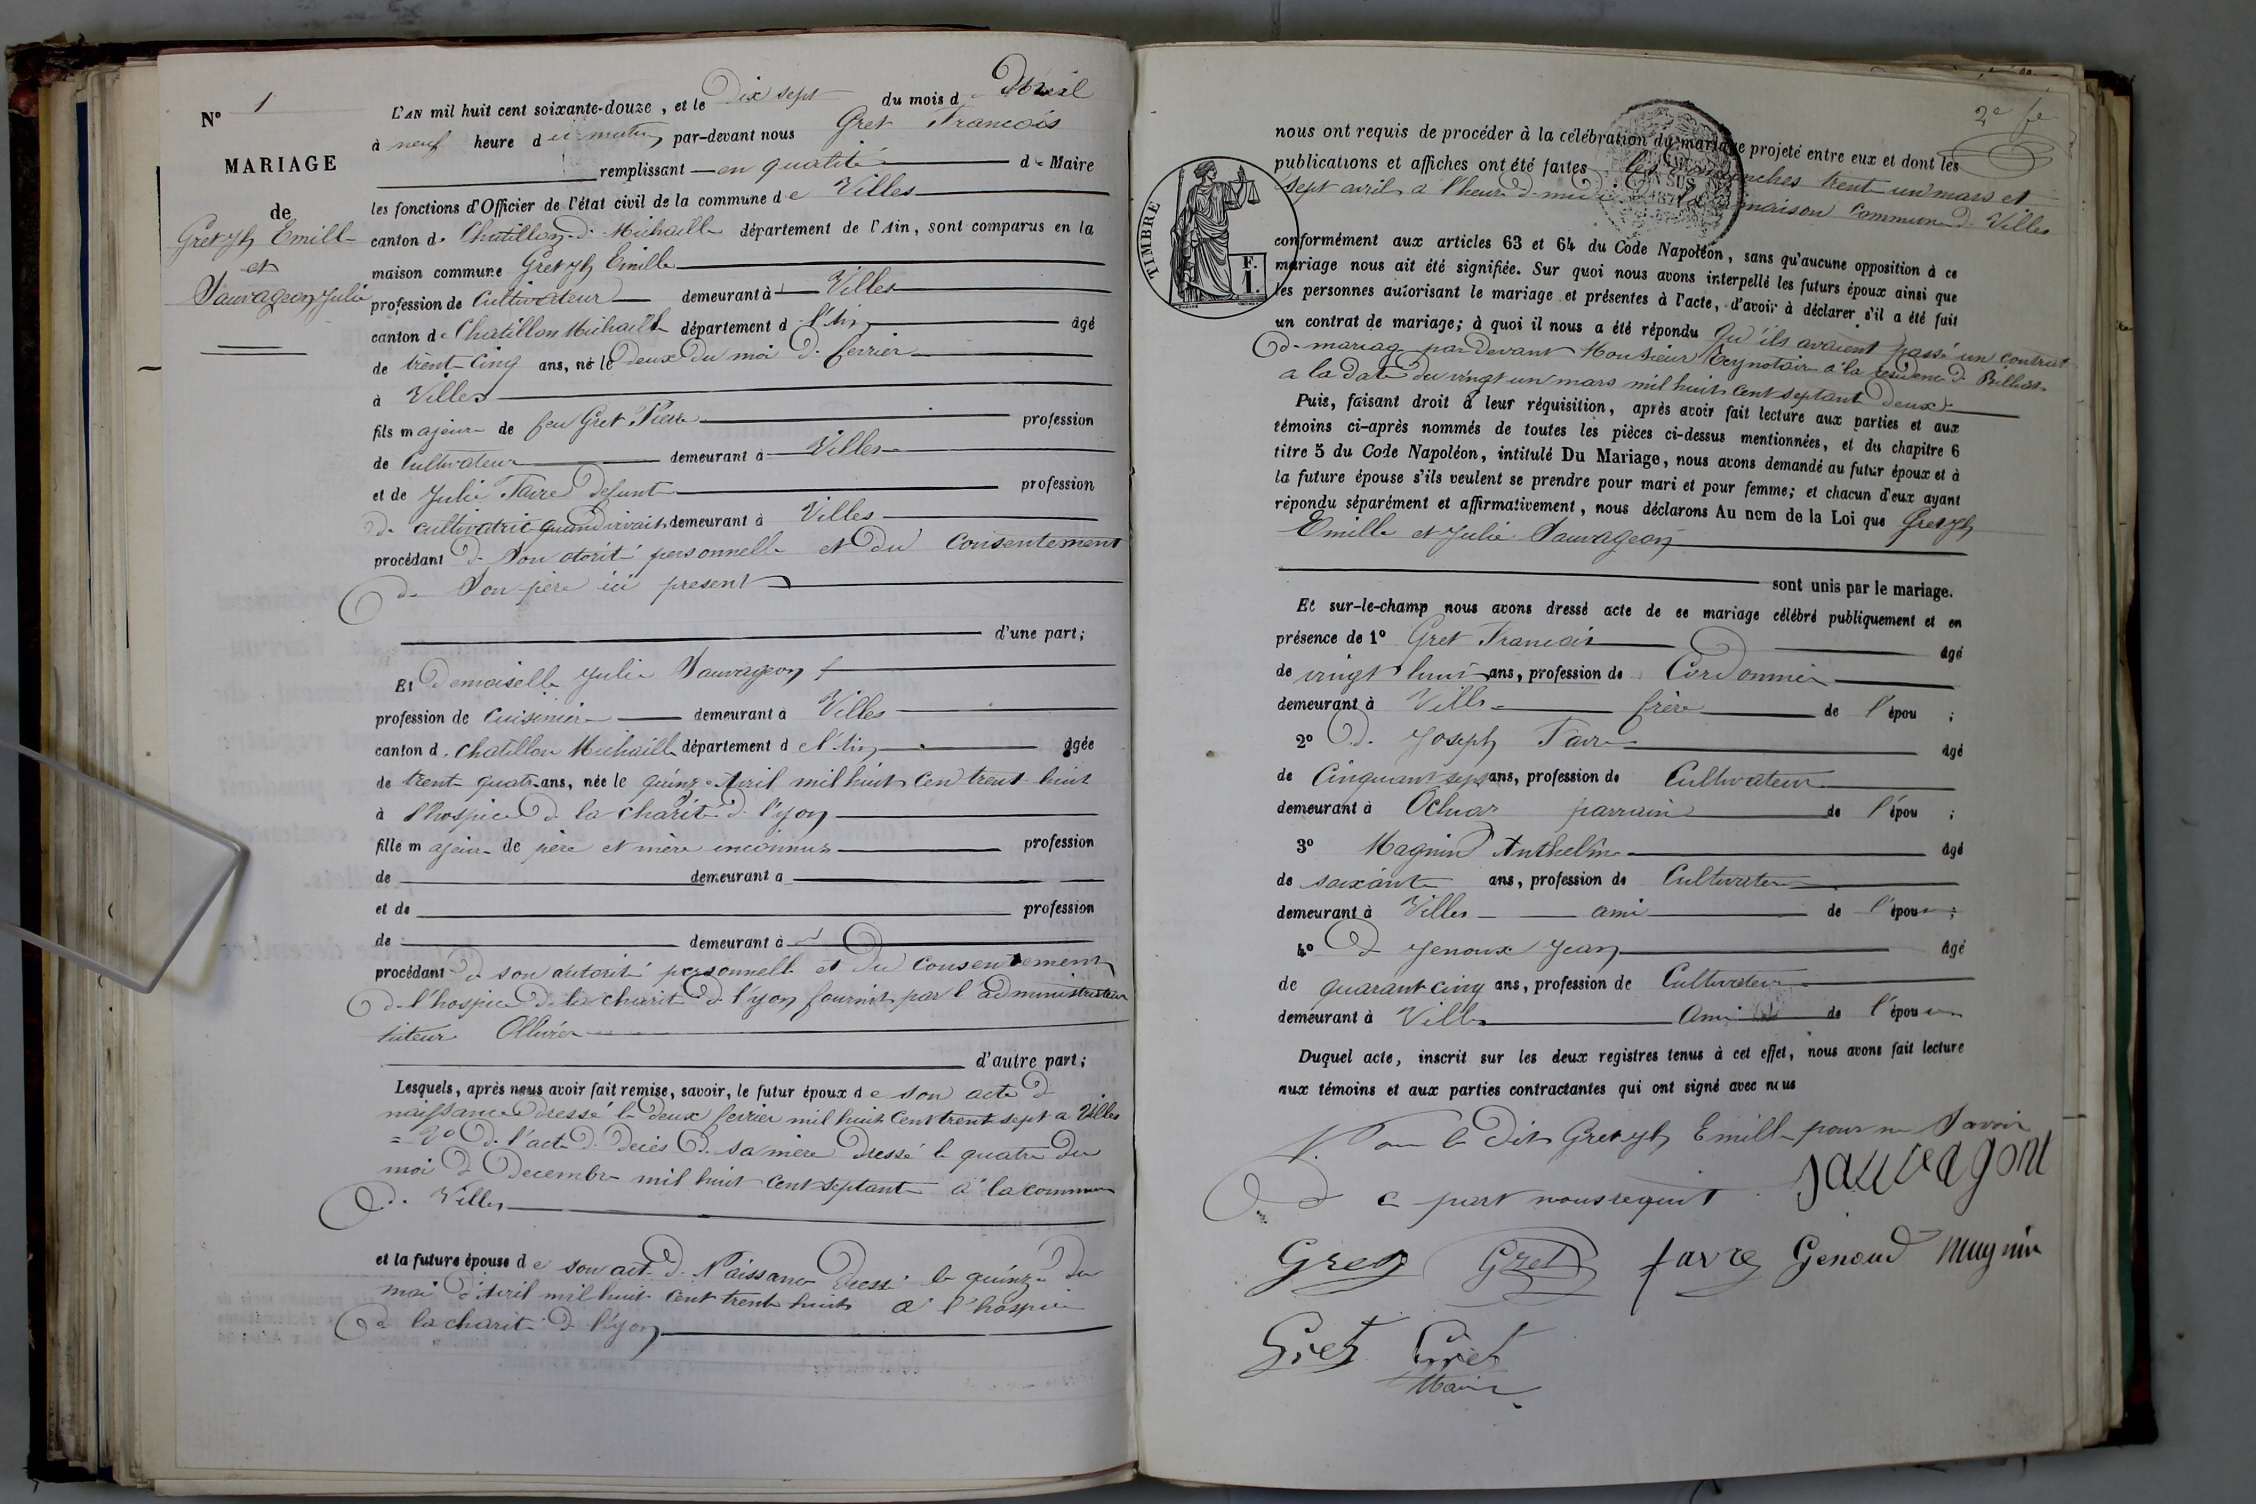 N° 1
MARIAGE
de
Gret Jh Emille
et
Sauvageon Julie
L'AN mil huit cent soixante-douze, et le Dix sept du mois d'Avril
à neuf heure du matin par-devant nous Gret Francois
remplissant en qualité de Maire
les fonctions d'Officier de l'état civil de la commune de Villes
canton de Chatillon d. Michaille département de l'Ain, sont comparus en la
maison commune Gret Jh Emille
profession de Cultivateur demeurant à Villes
canton de Chatillon Michaille département d l'Ain âgé
de trente cinq ans, né le Deux du moi de ferrier
à Villes
fils majeur de feu Gret Pierre profession
de Cultivateur demeurant à Villes
et de Julie Favre defunte profession
de cultivatric quand vivait demeurant à Villes
procédant de son otorité personnelle et du consentement
de son père ici present
d'une part;
Et Demoiselle Julie Sauvageon
profession de Cuisiniere demeurant à Villes
canton d. Chatillon Michaille département de l'Ain âgée
de trente quatre ans, née le quinze Avril mil huit cen trent huit
à l'hospice de la charité de l'yon
fille majeure de père et mère inconnus profession
de demeurant à
et de profession
de demeurant à
procédant de son autorité personnelle et du consentement
de l'hospice de la charité de l'yon fournit par l'administrateur
tuteur Ollivier
d'autre part;
Lesquels, après nous avoir fait remise, savoir, le futur époux de son acte de
naissance dressé le deux ferrier mil huit cent trente sept a Villes
= 2° de l'acte de décès de sa mère dressé le quatre du
moi de Decembre mil huit cent septante a la commune
de Villes
et la future épouse de son act de Naissance dressé le quinze du
moi d'Avril mil huit cent trente huit a l'hospice
de la charité de l'yon
2e fe
nous ont requis de procéder à la célébration du mariage projeté entre eux et dont les
publications et affiches ont été faites les dimanches trent un mars et
sept avril a l'heure de midi maison commune de Villes
TIMBRE
F.
1.
conformément aux articles 63 et 64 du Code Napoléon, sans qu'aucune opposition à ce
mariage nous ait été signifiée. Sur quoi nous avons interpellé les futurs époux ainsi que
les personnes autorisant le mariage et présentes à l'acte, d'avoir à déclarer s'il a été fait
un contrat de mariage; à quoi il nous a été répondu qu'ils avaient passé un contrat
de mariag par devant Monsieur notaire a la residence de Billiat
a la date du vingt un mars mil huit cent septant deux
Puis, faisant droit à leur réquisition, après avoir fait lecture aux parties et aux
témoins ci-après nommés de toutes les pièces ci-dessus mentionnées, et du chapitre 6
titre 5 du Code Napoléon, intitulé Du Mariage, nous avons demandé au futur époux et à
la future épouse s'ils veulent se prendre pour mari et pour femme; et chacun d'eux ayant
répondu séparément et affirmativement, nous déclarons Au nom de la Loi que Gret Jh
Emille et Julie Sauvageon
sont unis par le mariage.
Et sur-le-champ nous avons dressé acte de ce mariage célébré publiquement et en
présence de 1° Gret Francois âgé
de vingt huit ans, profession de Cordonnier
demeurant à Villes frère de l'épou ;
2° d. Joseph Favre âgé
de Cinquant sept ans, profession de Cultivateur
demeurant à Ochiaz parrain de l'épou ;
3° Magnin Anthelme âgé
de soixante ans, profession de Cultivateur
demeurant à Villes ami de l'épou ;
4° d Jenoux Jean âgé
de quarant cinq ans, profession de Cultivateur
demeurant à Villes Ami de l'épou
Duquel acte, inscrit sur les deux registres tenus à cet effet, nous avons fait lecture
aux témoins et aux parties contractantes qui ont signé avec nous
le dit Gret Jh Emille pour ne Savoir
de c part nous requit Sauvagont
Gret Gret favre Genoud Magnin
Gret Gret
Maire